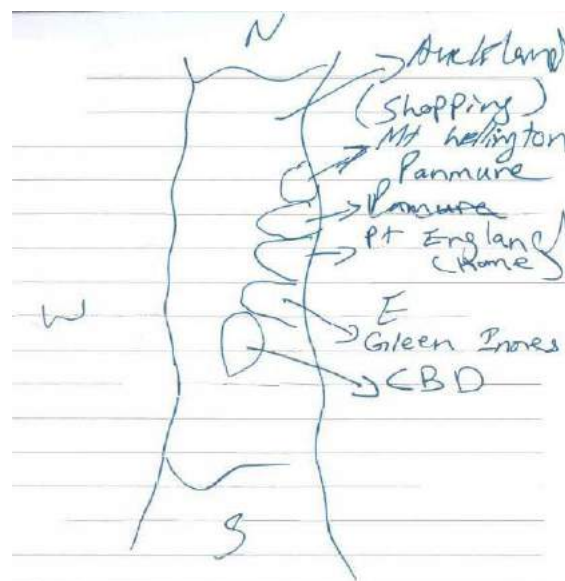 N
Auckland
(Shopping)
Mt wellington
Panmure
Panmure
Pt England
(Home)
W
E
Gleen Inores
CBD
S